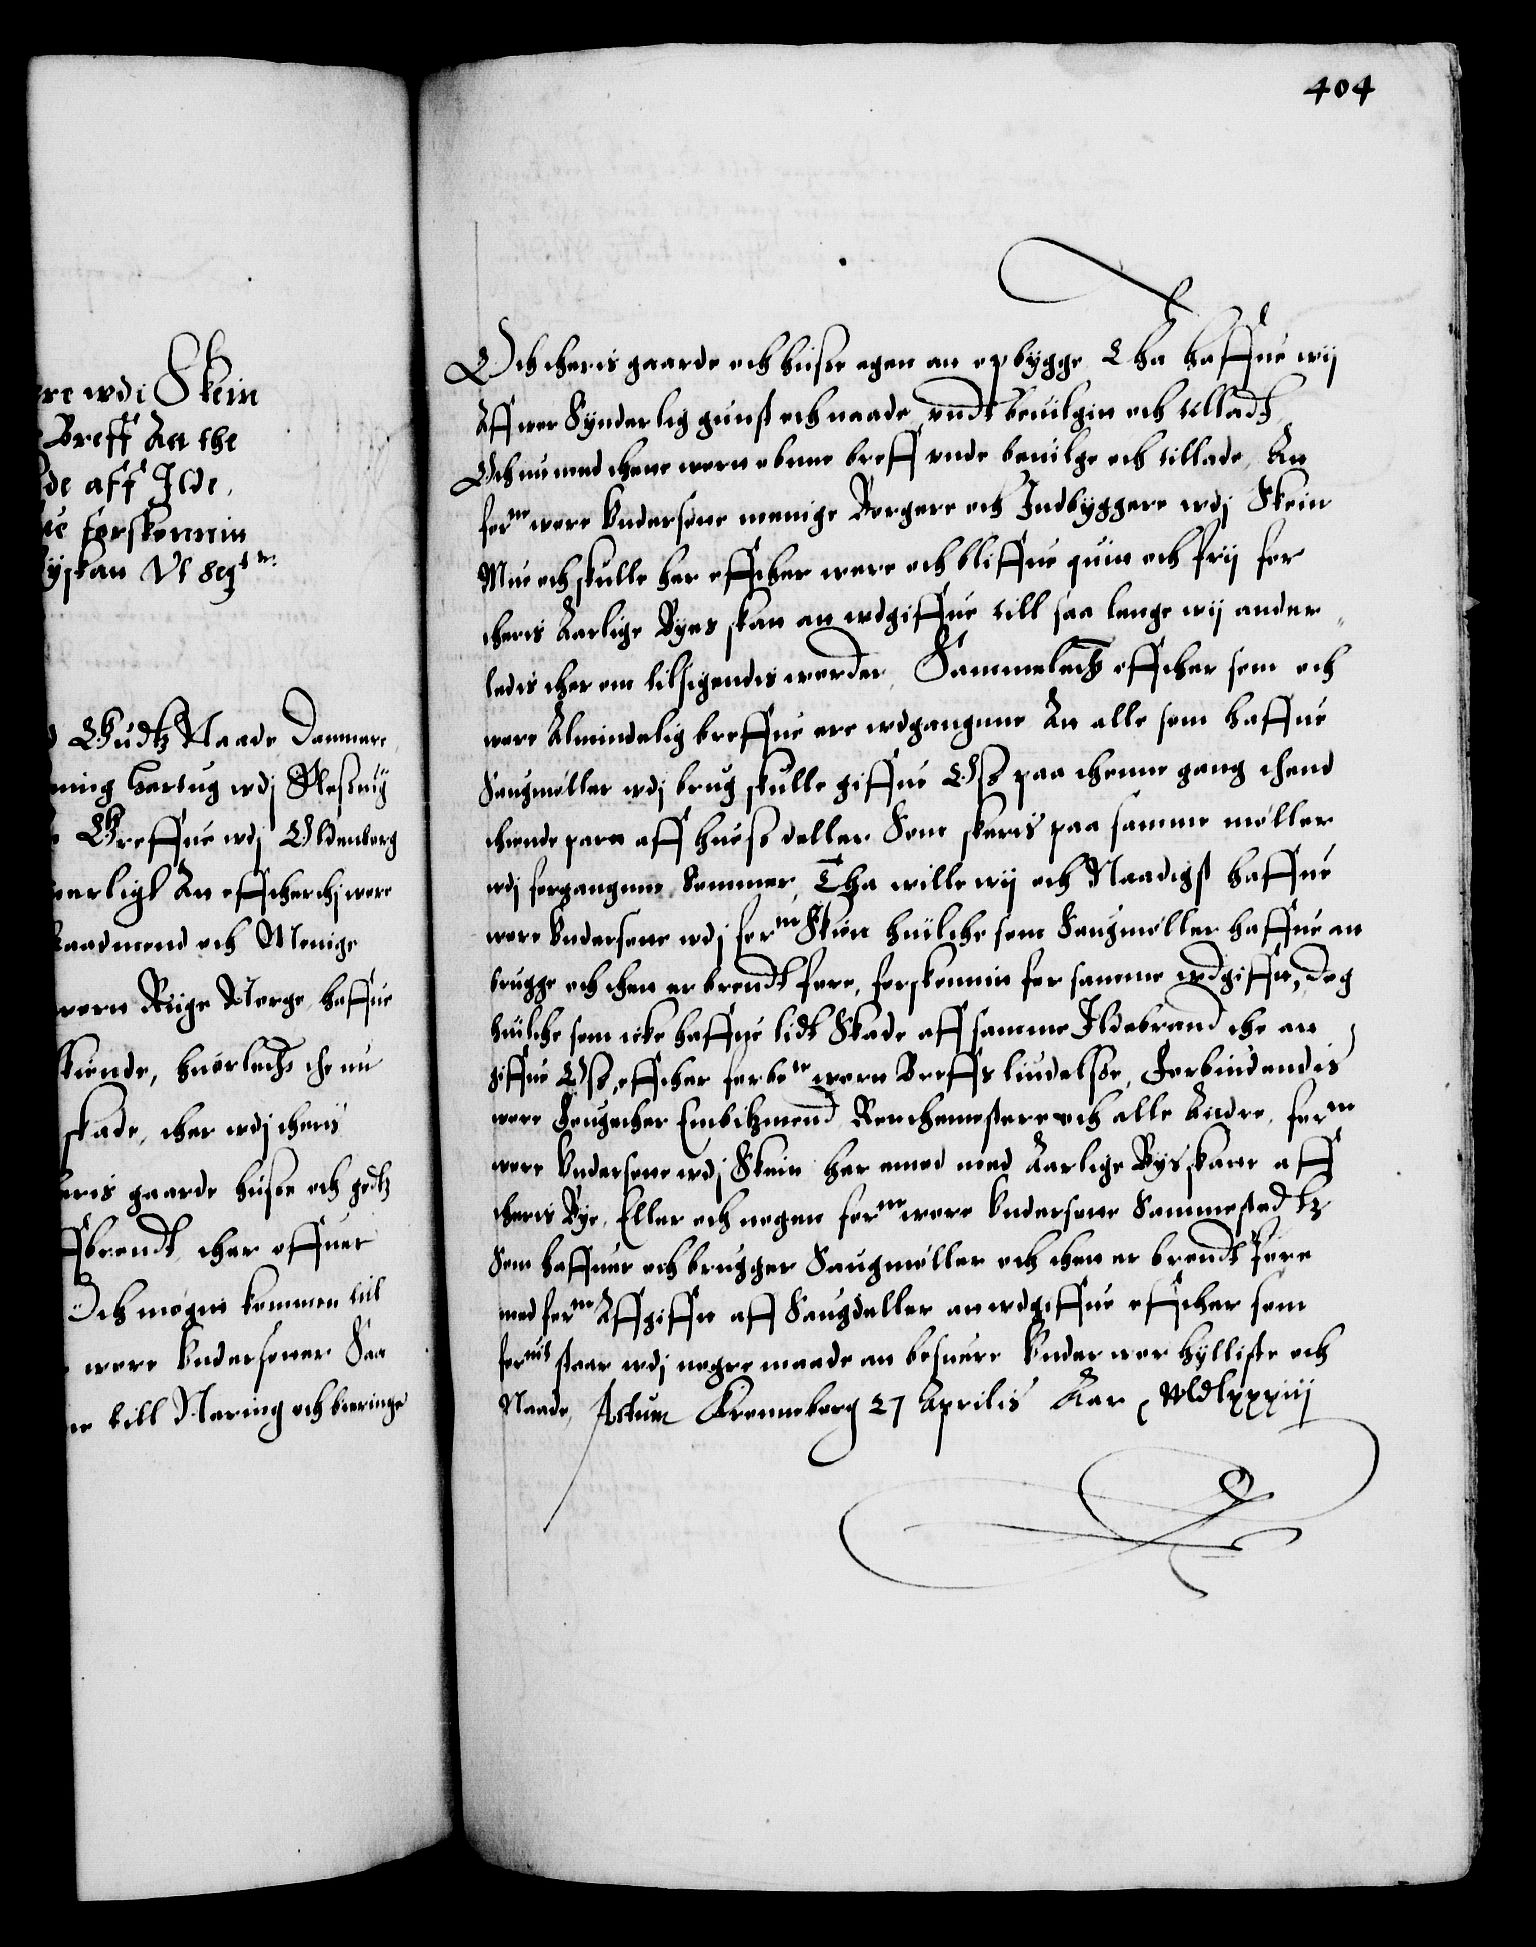 404
re wdi Skein
Breff Att the
de aff Ilde,
ue forskonnin
yskatt Vt seqtr:
Gudtz Naade Danmarc
ning Hertug wdj Slesuig
Greffue wdj Oldenborg
arligt Att effther thj wore
Raadmend och Menige
wort Rige Norge, haffue
kiende, huorledtz the nu
skade, ther wdj theris
eris gaarde husse och godtz
brendt, ther offuer
Och mogit kommen till
wore Vndersotter Saa
till Naring och biering
Och theris gaarde och husse igen at opbygge Tha haffue wij
Aff wor Synderlig gunst och naade, vndt beuilgit och tilladt
Och nu med thette wort obne breff vnde beuilge och tillade, At
forne wore Vndersotte menige Borgere och Indbyggere wdj Skein
Mue och skulle her effther were och bliffue quit och frij for
theris Aarlige Byes skat at wdgiffue till saa lenge wij ander
ledis ther om tilsigendis worder, Sammeledtz effther som och
wore Almindelig breffue ere wdgangnne At alle som haffue
Saugmøller wdj brug skulle giffue Oss paa thenne gang thend
thiende part aff huess deller Som skoris paa samme møller
wdj forgangnne Sommer, Tha wille wij och Naadigst haffue
wore Vndersotte wdj forne Skien huilche som Saugmøller haffue at
brugge och then er brendt fore, forskonnit for samme wdgifft, Dog
huilche som icke haffue lidt Skade aff samme Ildebrand the at
giffue Oss, effther forbete wort Breffs liudelsse, Forbiudendis
wore Fougether Embitzmend Renthemestere och alle Andre, forne
wore Vndersotte wdj Skein her emod med Aarlige Bysskatt aff
theris Bye, Eller och nogen forne wore Vndersotte Sammestedtz
Som haffuer och brugger Saugmøller och then er brendt fore
med forne Affgifft aff Saugdeller at wdgiffue effther som
foruit staar wdj nogre maade at besuere Vnder wor hylliste och
Naade, Actum Kronneborg 27 Aprilis Aar Mdlxxxiiij